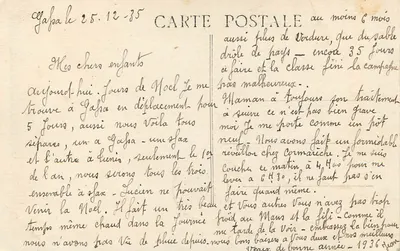 Gafsa le 25.12-35
CARTE POSTALE
Mes chers enfants
Aujourd'hui Jours de Noel Je me
trouve à Gafsa en déplacement pour
5 Jours, aussi nous Voila tous
séparés, un à Gafsa - un sfax
et l'autre à Tunis, seulement le 1er
de l'an, nous serons tous les trois
ensemble à sfax - Lucien ne pouvait
Venir la Noel. Il fait un très beau
temps même chaud dans la Journée
nous n'avons pas Vu de pluie depuis
au moins 6 mois
aussi plus de Verdure, que du sable
drôle de pays - encore 35 Jours
à faire et la classe fini la campagne
pas malheureux.
Maman à toujours son traitement
à suivre ce n'est pas bien grave
moi Je me porte comme un pot
neuf. Nous avons fait un formidable
réveillon chez Cormariche. Je me suis
couché ce matin à 4,H00 pour me
lever à 6H30, il ne faut pas s'en
faire quand même.
et Vous autres Vous n'avez pas trop
froid au Mans et la fifi - comme il
me tarde de la Voir - embrassez la bien pour
nous baisers a Vous deux et mes meilleurs
Vœux de bonne année - 1936